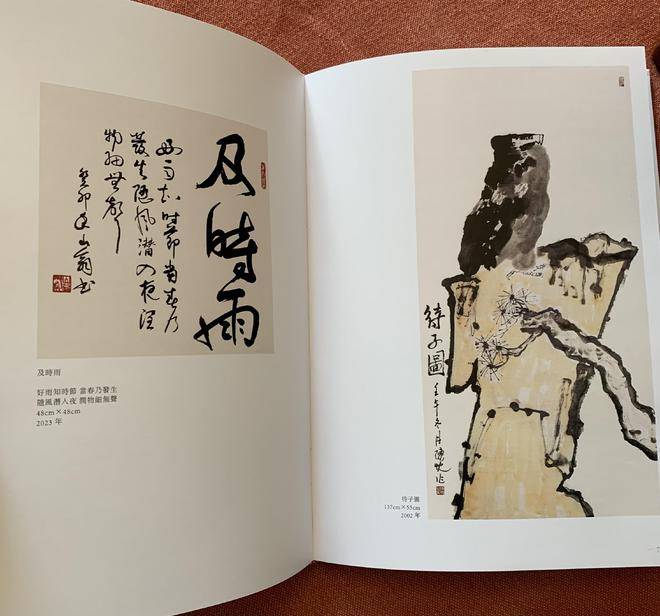 及時雨
好雨知時節當春乃
發生隨風潛入夜潤
物細無聲
癸卯山翁书
及時雨
好雨知時節 當春乃發生
隨風潛入夜 潤物細無聲
48cm×48cm
2023 年
待子圖
壬午冬月
待子圖
137cm×55cm
2002 年